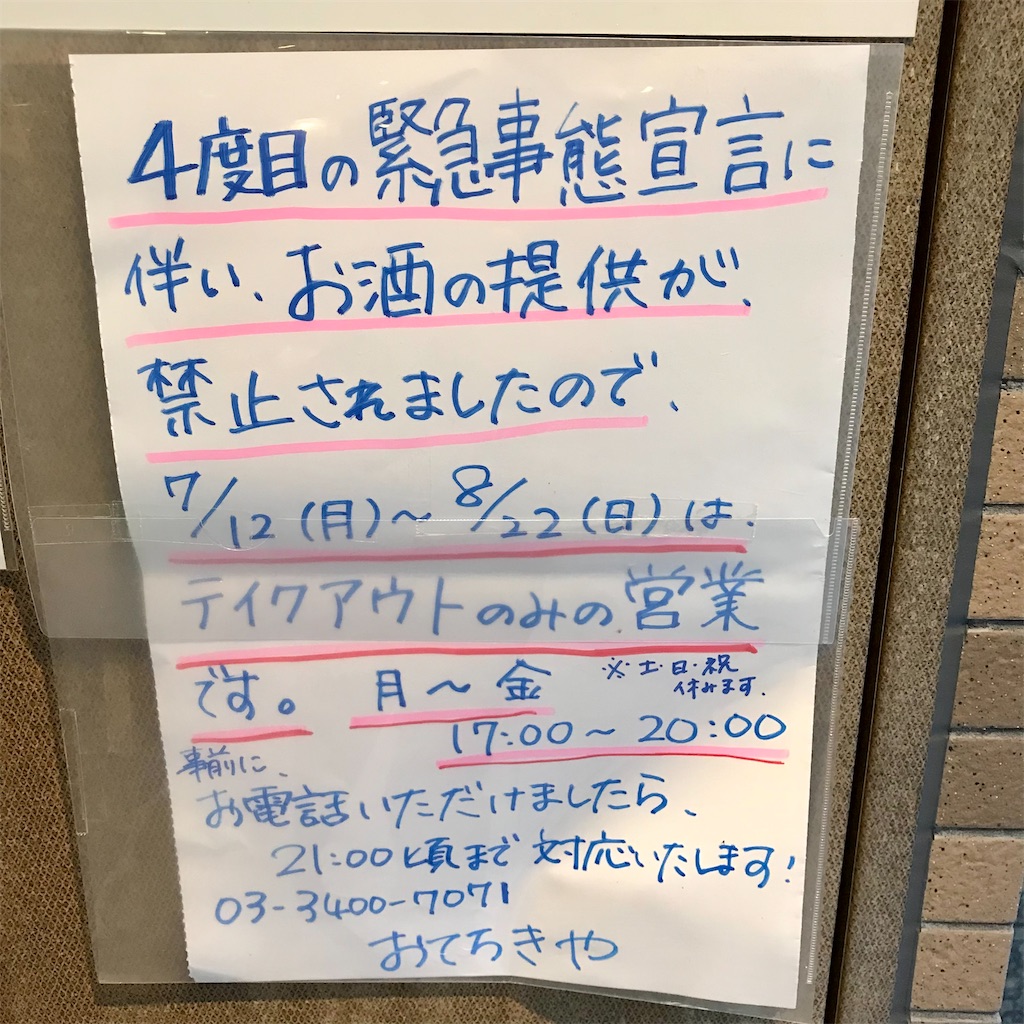 4度目の緊急事態宣言に
伴い、お酒の提供が、
禁止されましたので、
7/12(月)〜8/22(日)は、
テイクアウトのみの営業
です。月〜金 ※土・日・祝
休みます。
17:00〜20:00
事前に、
お電話いただけましたら、
21:00頃まで対応いたします!
03-3400-7071
おてちきや